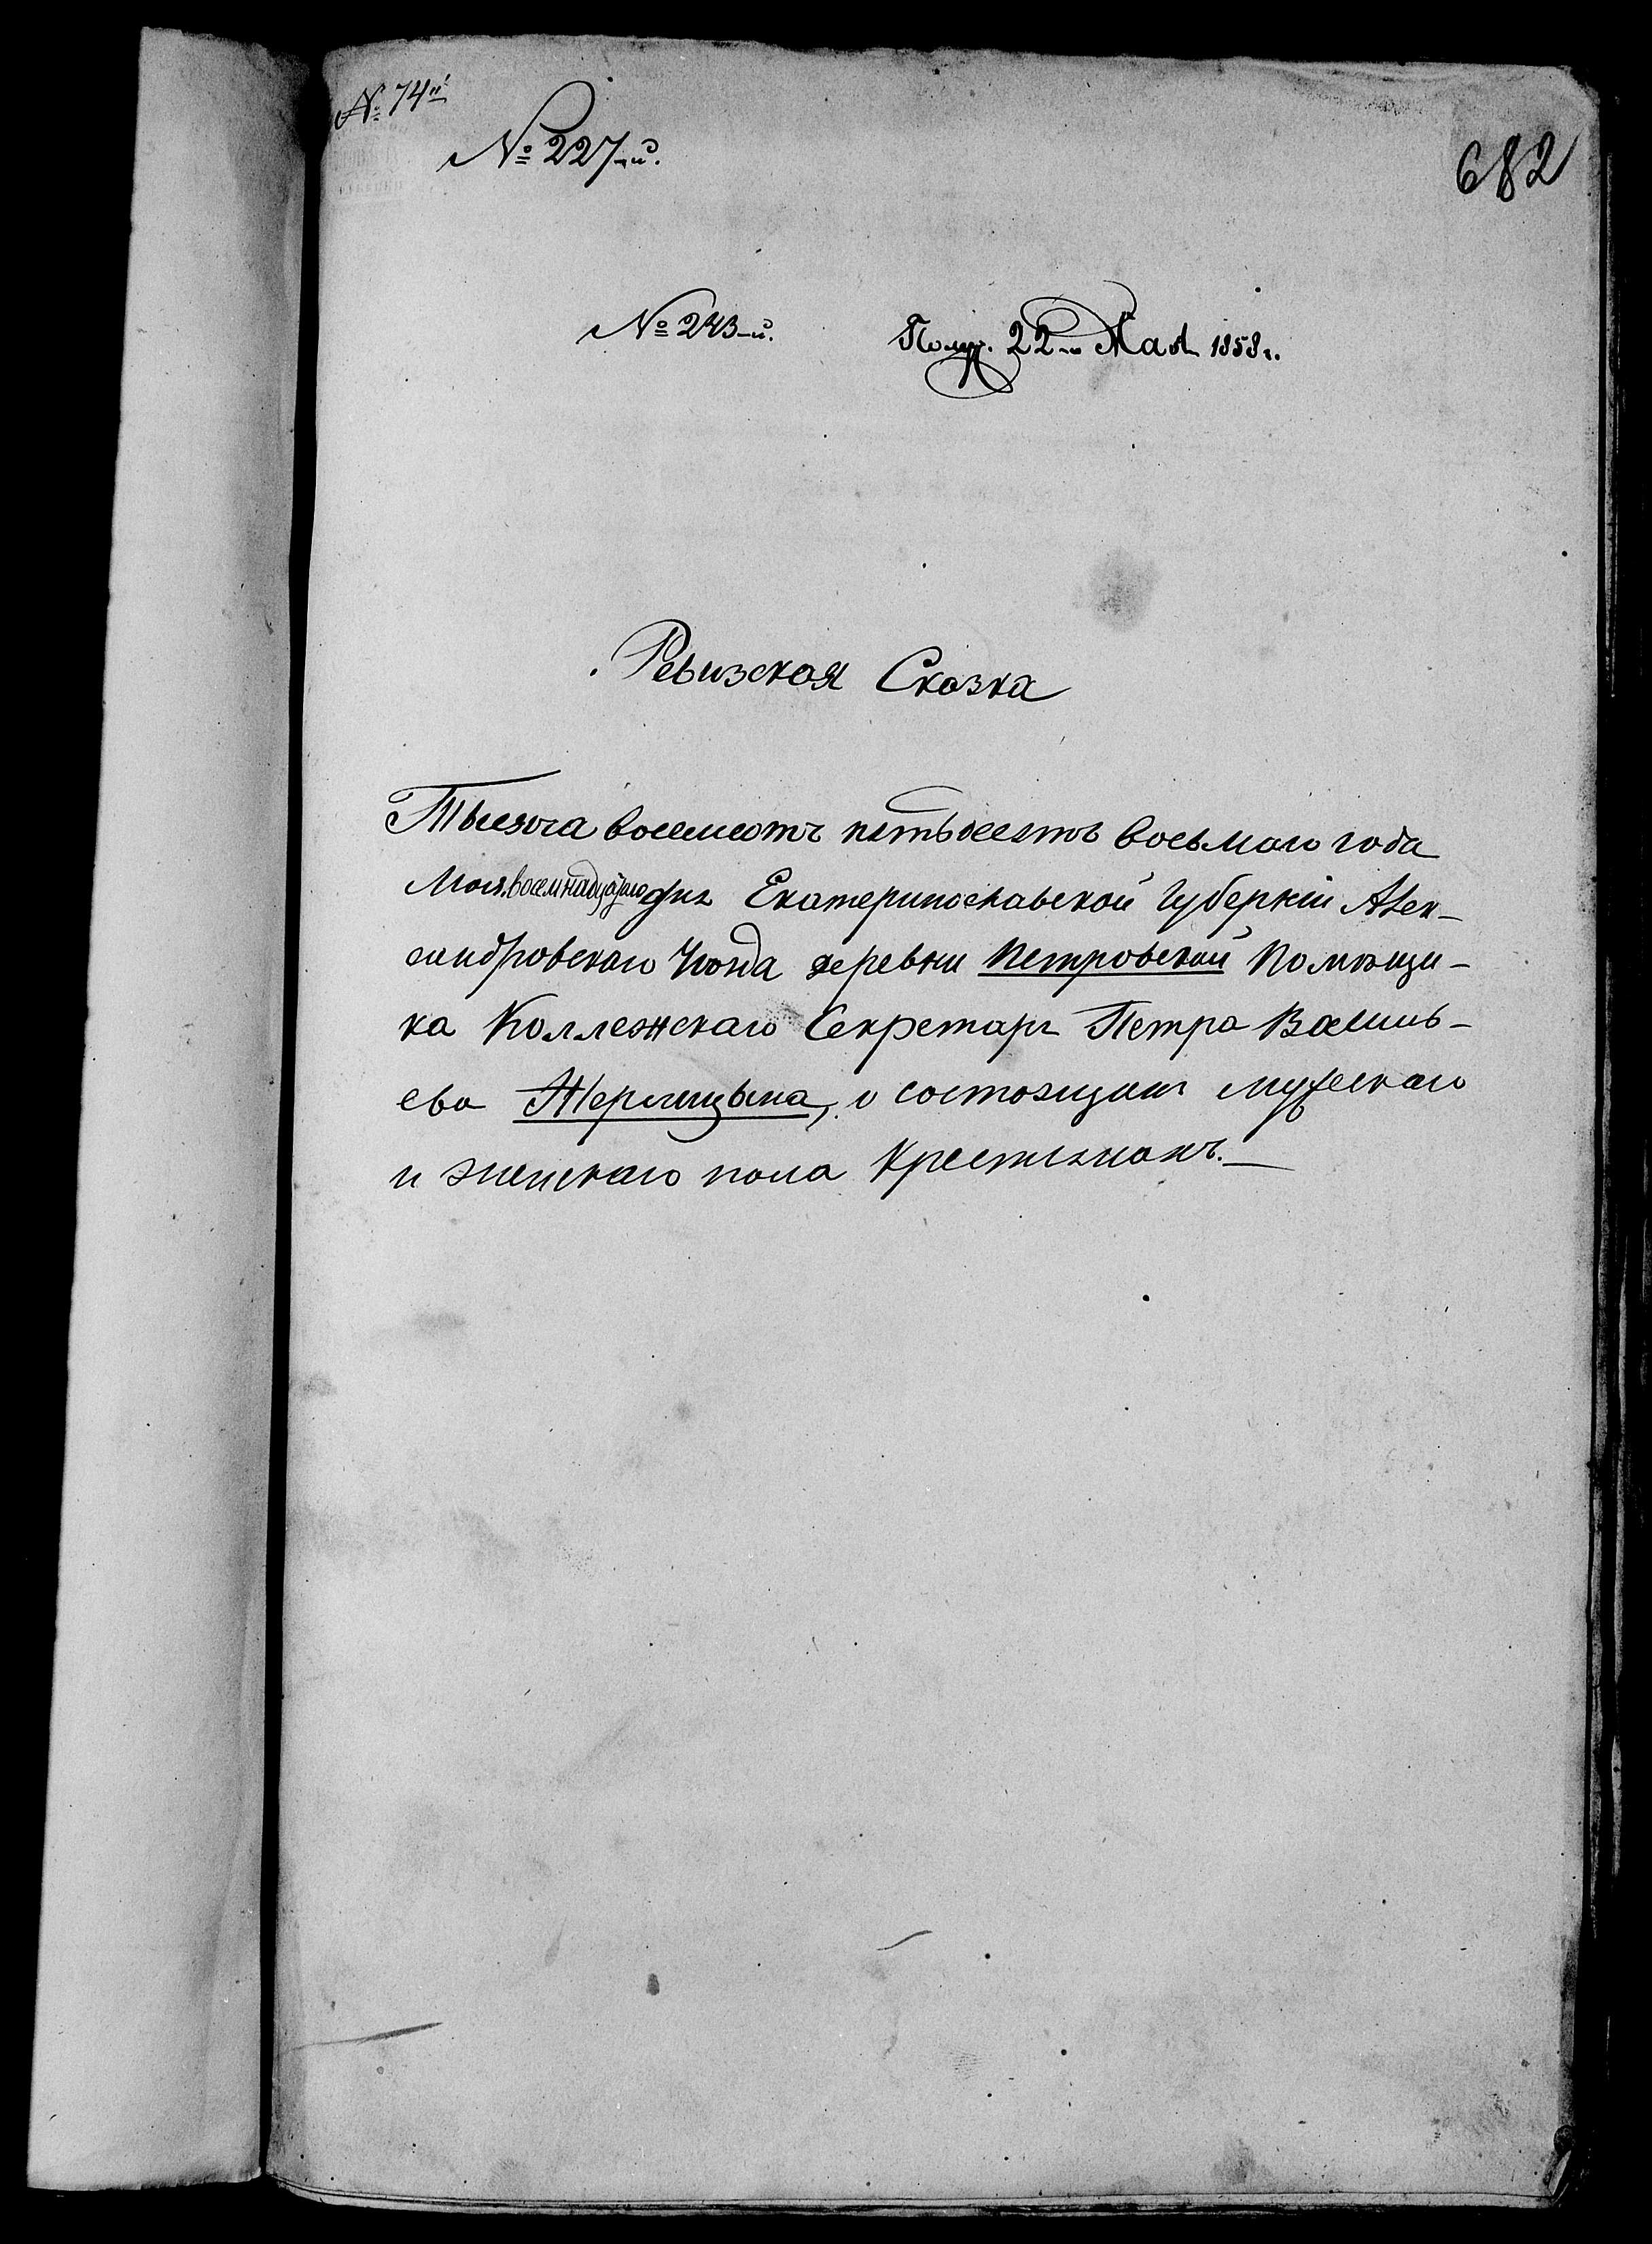 № 74й
№ 227-й.
682
№ 243-й.
Получ. 22-го Мая 1858 г.
Ревизская Сказка
Тысяча восемсотъ пятьдесятъ восьмаго года
Мая восемнадцатаго дня Екатеринославской Губерніи Алек-
сандровскаго Уѣзда деревни Петровской Помѣщи-
ка Коллежскаго Секретаря Петра Василь-
ева о состоящихъ мужескаго
и женскаго пола Крестьянахъ.